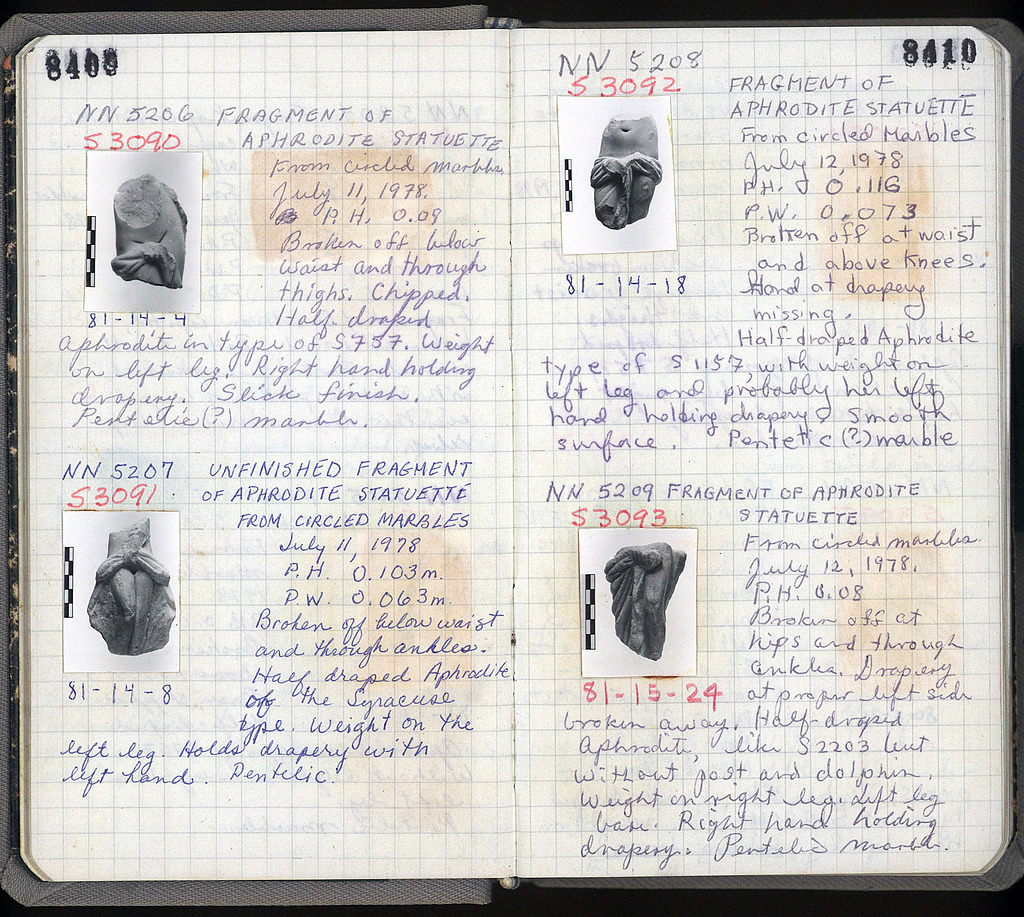 8409
NN 5206 FRAGMENT OF
S 3090 APHRODITE STATUETTE
From circled marbles
July 11, 1978.
P.H. 0.09
Broken off below
waist and through
thighs. Chipped.
81-14-4 Half-draped
Aphrodite in type of S 757. Weight
on left leg. Right hand holding
drapery. Slick finish.
Pentelic (?) marble.
NN 5207 UNFINISHED FRAGMENT
S 3091 OF APHRODITE STATUETTE
FROM CIRCLED MARBLES
July 11, 1978
P.H. 0.103 m.
P.W. 0.063 m.
Broken off below waist
and through ankles.
Half draped Aphrodite
81-14-8 of the Syracuse
type. Weight on the
left leg. Holds drapery with
left hand. Pentelic.
8410
NN 5208
S 3092 FRAGMENT OF
APHRODITE STATUETTE
From circled Marbles
July 12, 1978
P.H. 0.116
P.W. 0.073
Broken off at waist
and above knees.
81-14-18 Hand at drapery
missing.
Half-draped Aphrodite
type of S 1157, with weight on
left leg and probably her left
hand holding drapery. Smooth
surface. Pentelic (?) marble
NN 5209 FRAGMENT OF APHRODITE
S 3093 STATUETTE
From circled marbles.
July 12, 1978.
P.H. 0.08
Broken off at
hips and through
ankles. Drapery
81-15-24 at proper left side
broken away. Half-draped
Aphrodite, like S 2203 but
without post and dolphin.
Weight on right leg. Left leg
bare. Right hand holding
drapery. Pentelic marble.